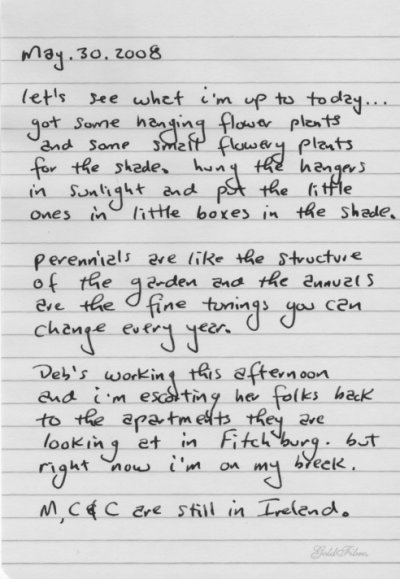 May.30.2008
let's see what i'm up to today...
got some hanging flower plants
and some small flowery plants
for the shade. hung the hangers
in sunlight and put the little
ones in little boxes in the shade.
perennials are like the structure
of the garden and the annuals
are the fine tunings you can
change every year.
Deb's working this afternoon
and i'm escorting her folks back
to the apartments they are
looking at in Fitchburg. but
right now i'm on my break.
M, C & C are still in Ireland.
Gold Fibre